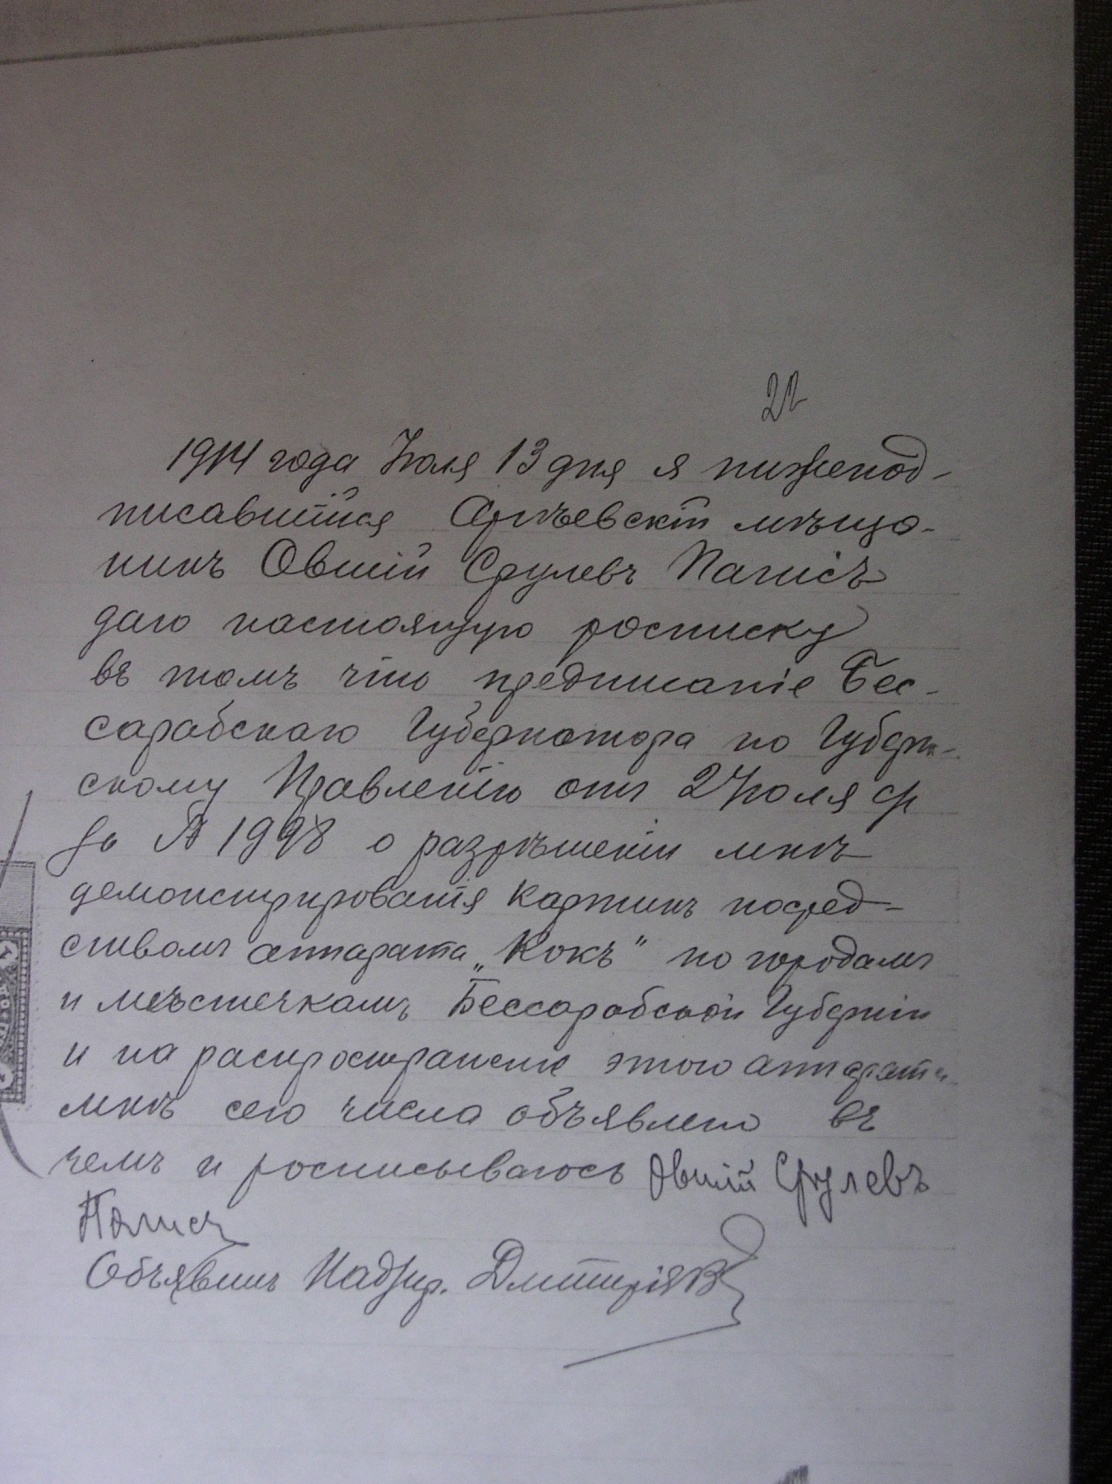 22
1914 года Июля 13 дня я нижепод-
писавшійся Оргѣевскій мѣща-
нинъ Овшій Срулевъ Паписъ
даю настоящую росписку
въ томъ что предписаніе Бес-
сарабскаго Губернатора по Губерн-
скому Правленію отъ 2 Июля
за № 1998 о разрѣшеніи мнѣ
демонстрированія картинъ посред-
ствомъ аппарата „Кокъ" по городамъ
и мѣстечкамъ Бессарабской Губерніи
и на распространеніе этого аппарата
мнѣ сего числа объявлено въ
чемъ и росписываюсь Овшій Срулевъ
Объявилъ Надзир.